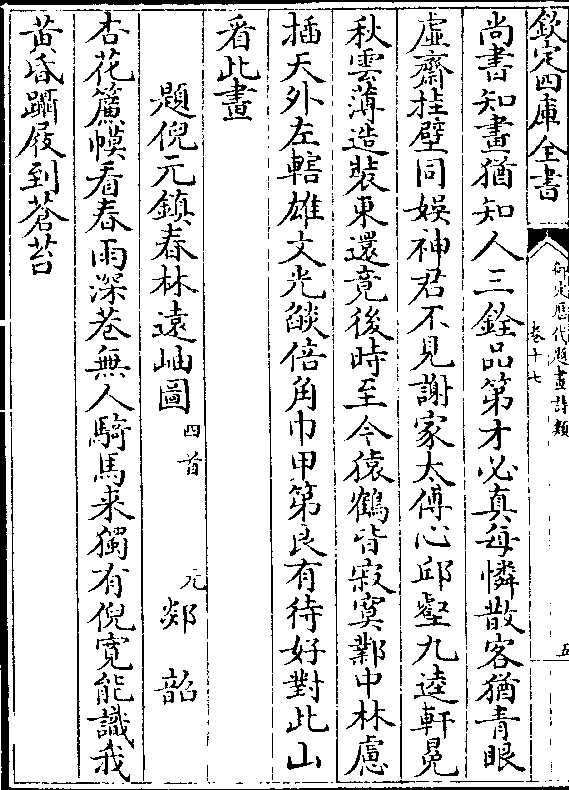 欽定四庫全書
御定歷代題畫詩類
卷十七
五
尚書知畫猶知人三銓品第才必真每憐散客猶青眼
虛齋挂壁同娛神君不見謝家太傅心邱壑九逵軒冕
秋雲薄造裝東還竟後時至今猿鶴皆寂寞鄴中林慮
插天外左轄雄文光燄倍角巾甲第良有待好對此山
看此畫
題倪元鎮春林遠岫圖四首 元郯韶
杏花簾幙看春雨深巷無人騎馬来獨有倪寬能識我
黄昏躡屐到蒼苔